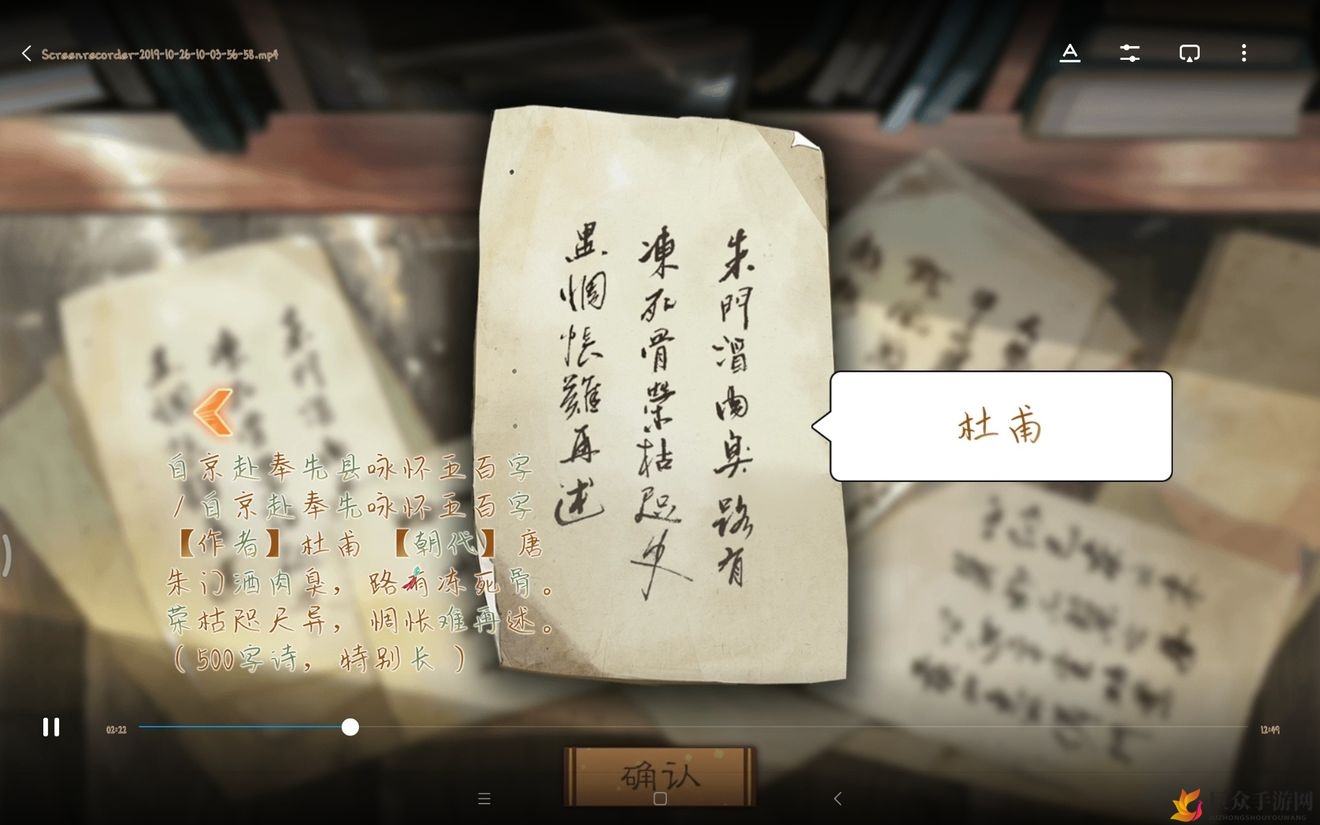 Screenrecorder-2019-10-26-10-03-56-58.mp4
朱門酒肉臭路有
凍死骨榮枯咫尺
異惆悵難再述
杜甫
自京赴奉先县咏怀五百字
/自京赴奉先咏怀五百字
【作者】杜甫 【朝代】唐
朱门酒肉臭，路有冻死骨。
荣枯咫尺异，惆怅难再述。
(500字诗，特别长 )
02:22
12:49
确认
巨众手游网
JUZHONGSHOUYOUWANG